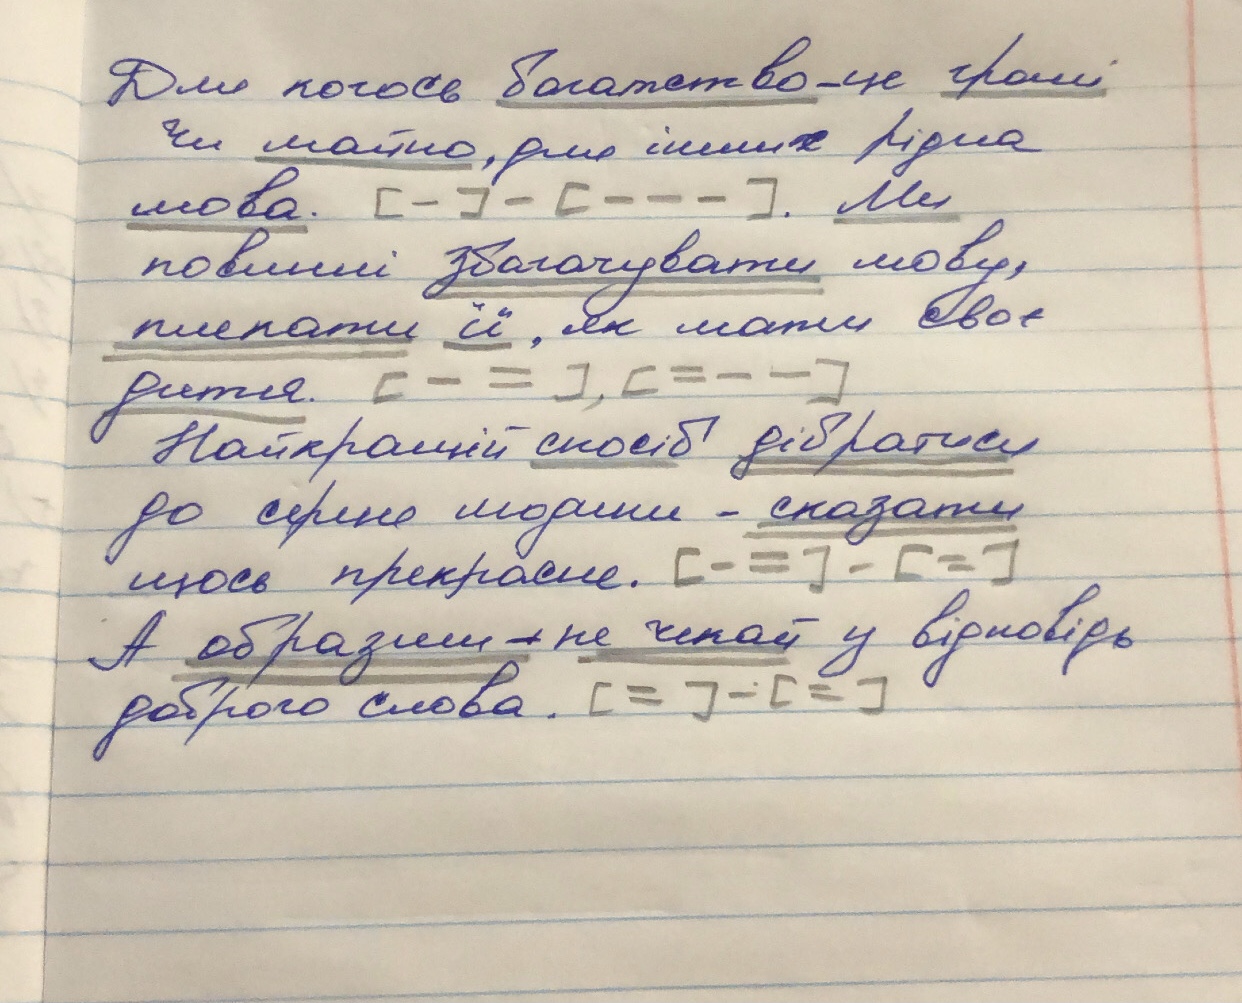 Для когось багатство – це гроші
чи майно, для інших рідна
мова. [ - ] - [ - - - ]. Ми
повинні збагачувати мову,
плекати її, як мати своє
дитя. [ - = ], [ = - - ]
Найкращій спосіб дібратися
до серця людини - сказати
щось прекрасне. [ - = ] - [ = ]
А образиш - не чекай у відповідь
доброго слова. [ = ] - [ = ]